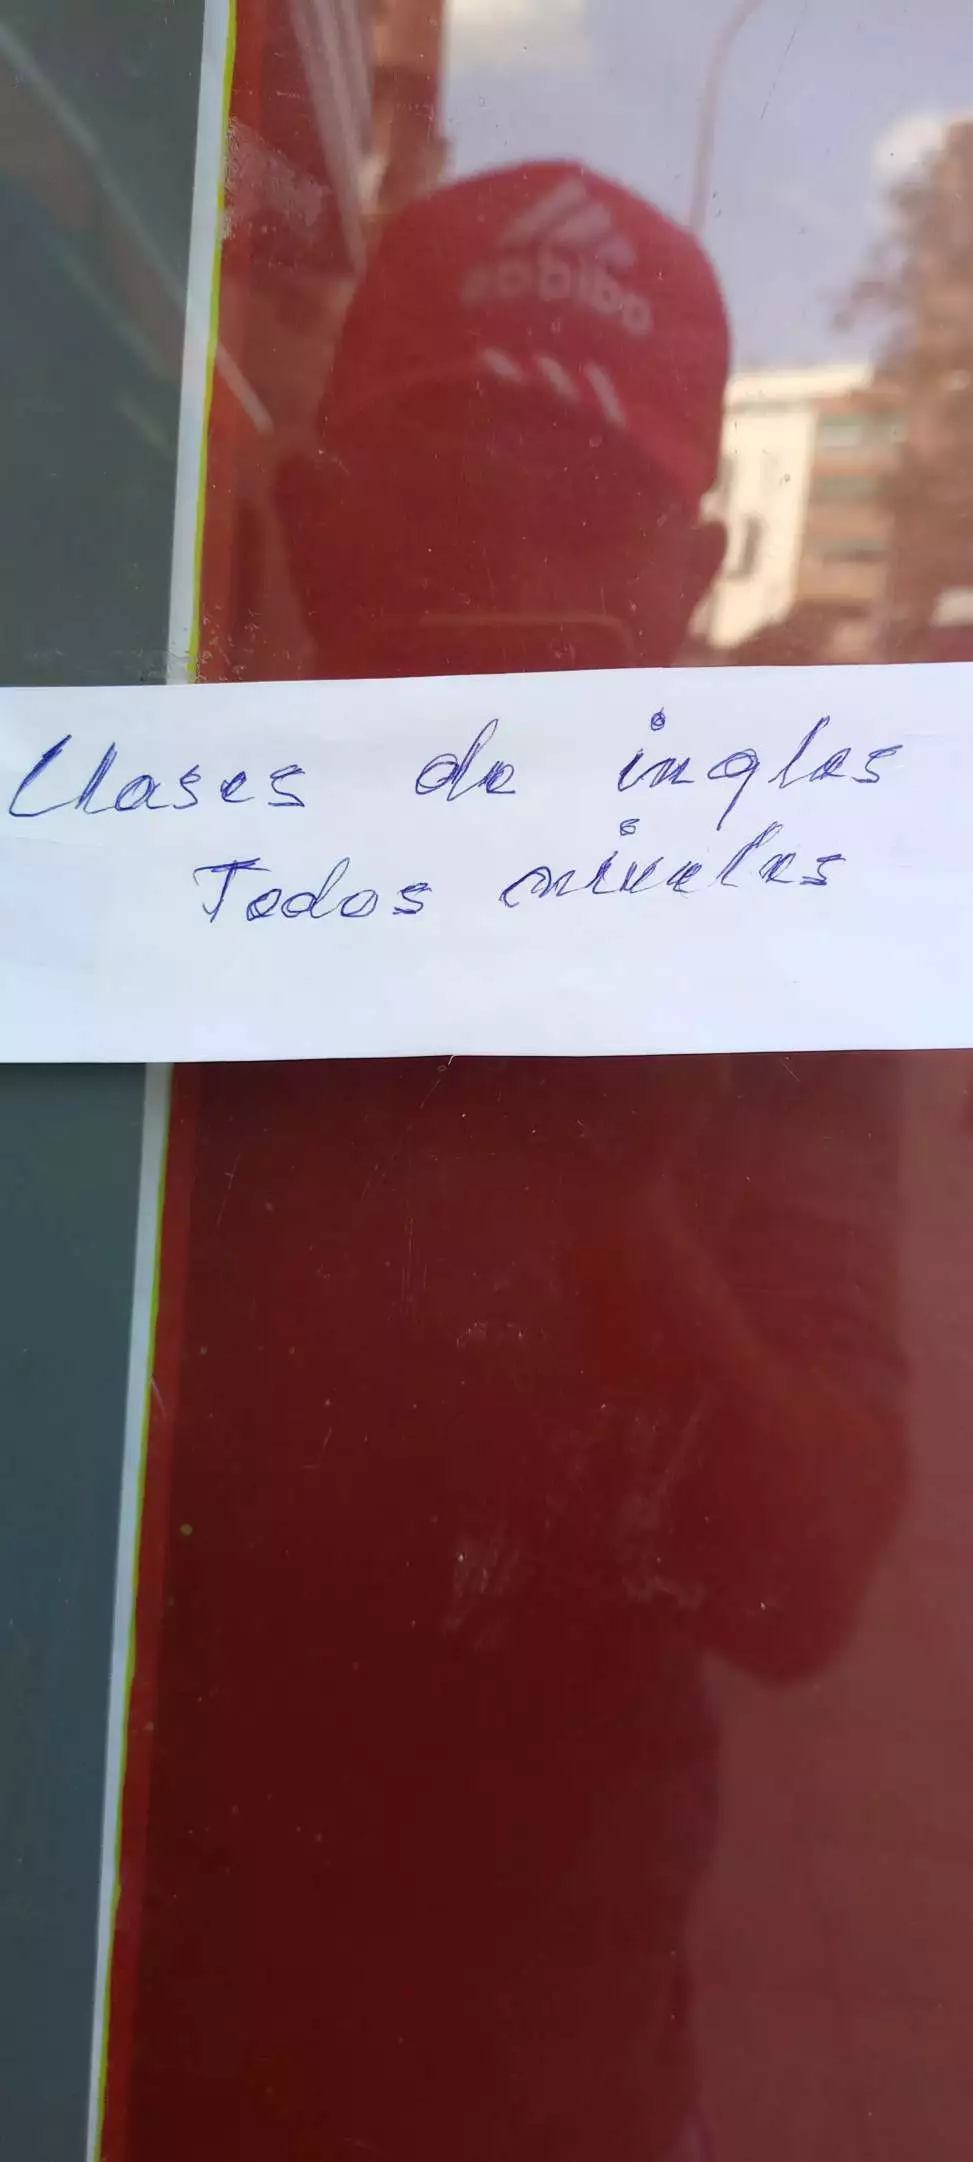 adidas
Clases de ingles
Todos niveles